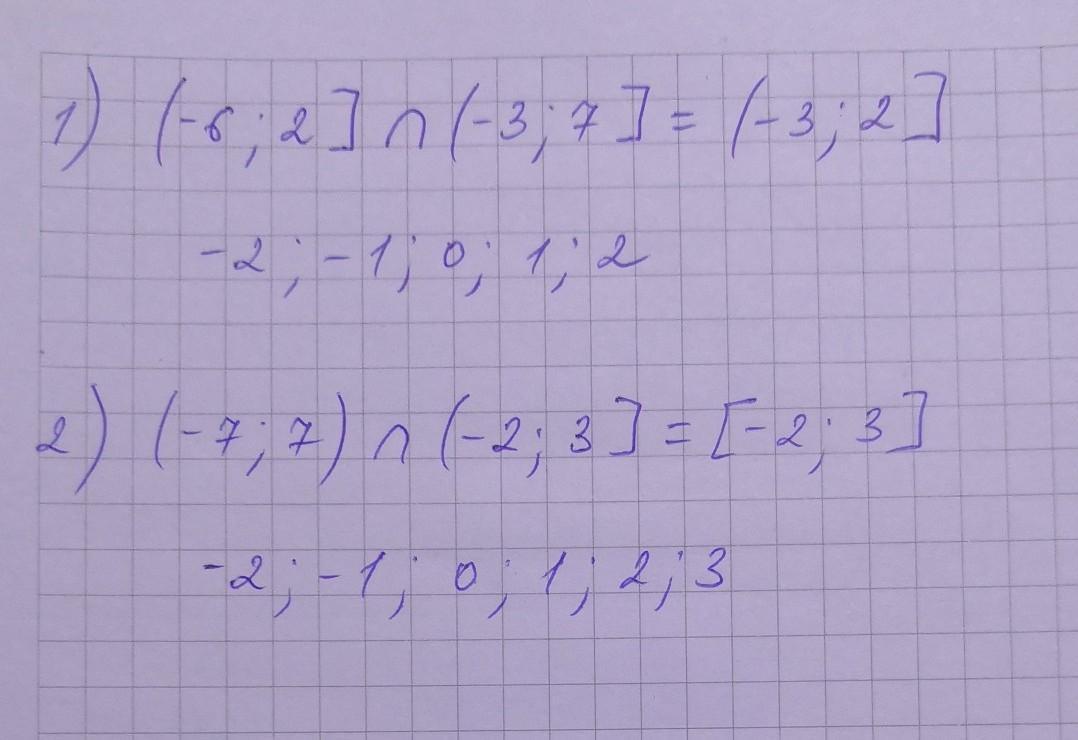 1) (-6; 2] ∩ (-3; 7] = (-3; 2]
-2; -1; 0; 1; 2
2) (-7; 7) ∩ (-2; 3] = [-2; 3]
-2; -1; 0; 1; 2; 3